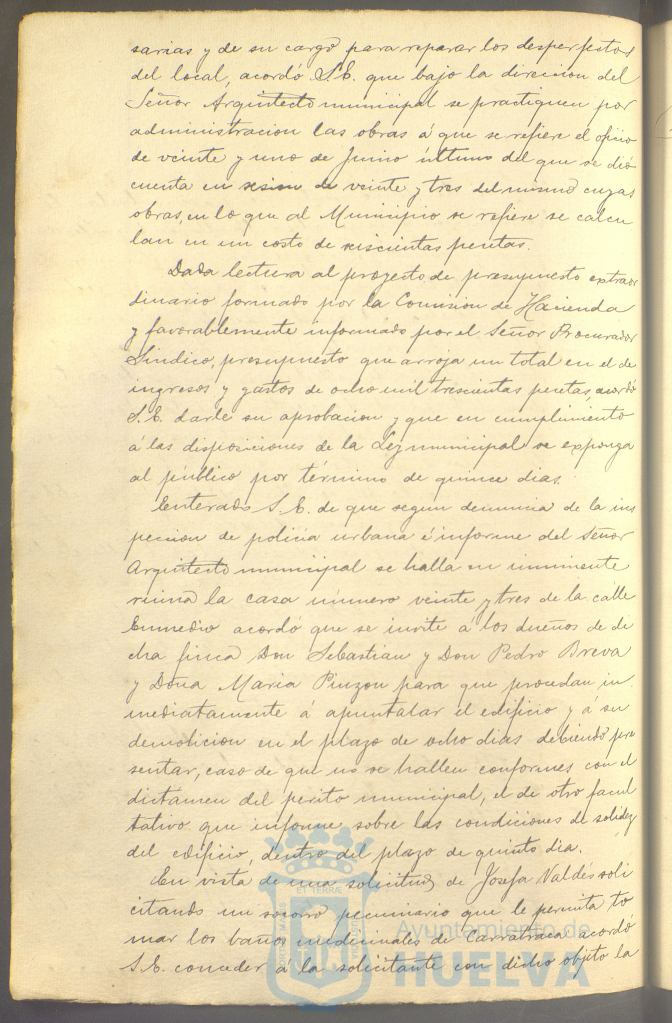 sarias y de su cargo para reparar los desperfectos
del local, acordó S.E. que bajo la direccion del
Señor Arquitecto municipal se practiquen por
administracion las obras á que se refiere el oficio
de veinte y uno de Junio último del que se dió
cuenta en sesion de veinte y tres del mismo cuyas
obras, en lo que al Municipio se refiere se calcu
lan en un costo de seiscientas pesetas.
Dada lectura al proyecto de presupuesto extraor
dinario formado por la Comision de Hacienda
y favorablemente informado por el Señor Procurador
Síndico, presupuesto que arroja un total en el de
ingresos y gastos de ocho mil trescientas pesetas, acordó
S.E. darle su aprobacion y que en cumplimiento
á las disposiciones de la Ley municipal se exponga
al público por término de quince dias.
Enterado S.E. de que segun denuncia de la ins
peccion de policía urbana é informe del Señor
Arquitecto municipal se halla en inminente
ruina la casa número veinte y tres de la calle
Enmedio acordó que se invite á los dueños de di
cha finca Don Sebastian y Don Pedro Breva
y Doña Maria Pinzon para que procedan in
mediatamente á apuntalar el edificio y á su
demolicion en el plazo de ocho dias debiendo pre
sentar, caso de que no se hallen conformes con el
dictamen del perito municipal, el de otro facul
tativo que informe sobre las condiciones de solidez
del edificio, dentro del plazo de quinto dia.
En vista de una solicitud de Josefa Valdés soli
citando un socorro pecuniario que le permita to
mar los baños medicinales de Carratraca acordó
S.E. conceder á la solicitante con dicho objeto la
Ayuntamiento de
HUELVA